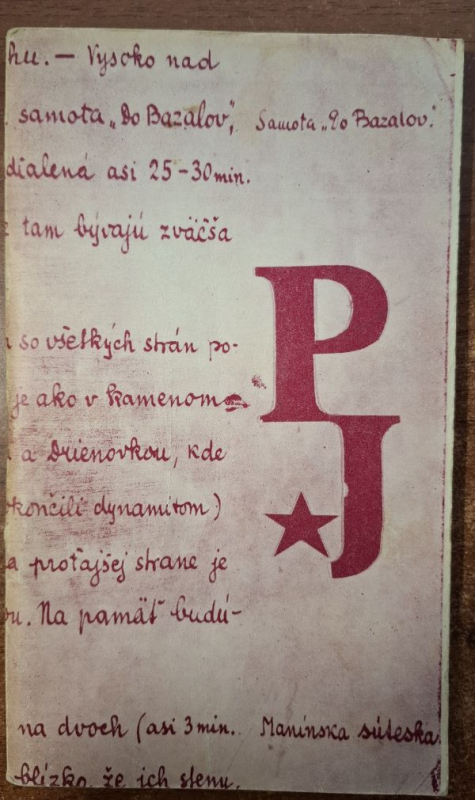 hu. — Vysoko nad
samota „Do Bazalov", Samota „Do Bazalov."
dialená asi 25-30 min.
tam bývajú zväčša
P
so všetkých strán po-
je ako v kamenom
J
a Drienovkou, kde
končili dynamitom)
a proťajšej strane je
ou. Na pamäť budú-
na dvoch (asi 3 min. Manínska súteska
blízko, že ich stenu,